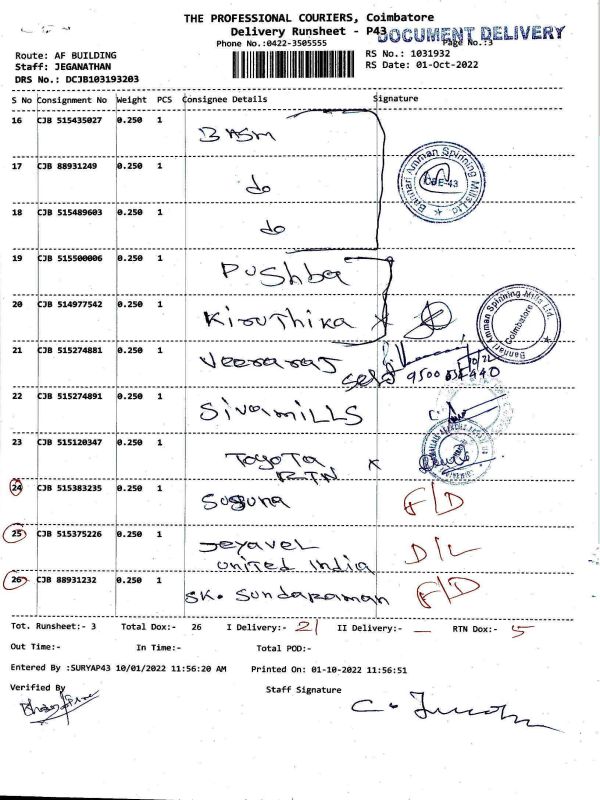 THE PROFESSIONAL COURIERS, Coimbatore
Delivery Runsheet - P43
DOCUMENT DELIVERY
Phone No.:0422-3505555
Page No.:3
Route: AF BUILDING
RS No.: 1031932
Staff: JEGANATHAN
RS Date: 01-Oct-2022
DRS No.: DCJB103193203
S No Consignment No Weight PCS Consignee Details Signature
16 CJB 515435027 0.250 1 BASM
Bannari Amman Spinning Mills Ltd
17 CJB 88931249 0.250 1 do
18 CJB 515489603 0.250 1 do
19 CJB 515500006 0.250 1 Pushba
20 CJB 514977542 0.250 1 Kiruthika
Bannari Amman Spinning Mills Ltd.
Coimbatore
21 CJB 515274881 0.250 1 Veeraraj
self
22 CJB 515274891 0.250 1 Siva MILLS
23 CJB 515120347 0.250 1 Toyota
RTN
24 CJB 515383235 0.250 1 Suguna F/D
25 CJB 515375226 0.250 1 Jeyavel D/L
United India
26 CJB 88931232 0.250 1 SK. Sundaraman F/D
Tot. Runsheet:- 3 Total Dox:- 26 I Delivery:- 21 II Delivery:- — RTN Dox:- 5
Out Time:- In Time:- Total POD:-
Entered By :SURYAP43 10/01/2022 11:56:20 AM Printed On: 01-10-2022 11:56:51
Verified By
Staff Signature